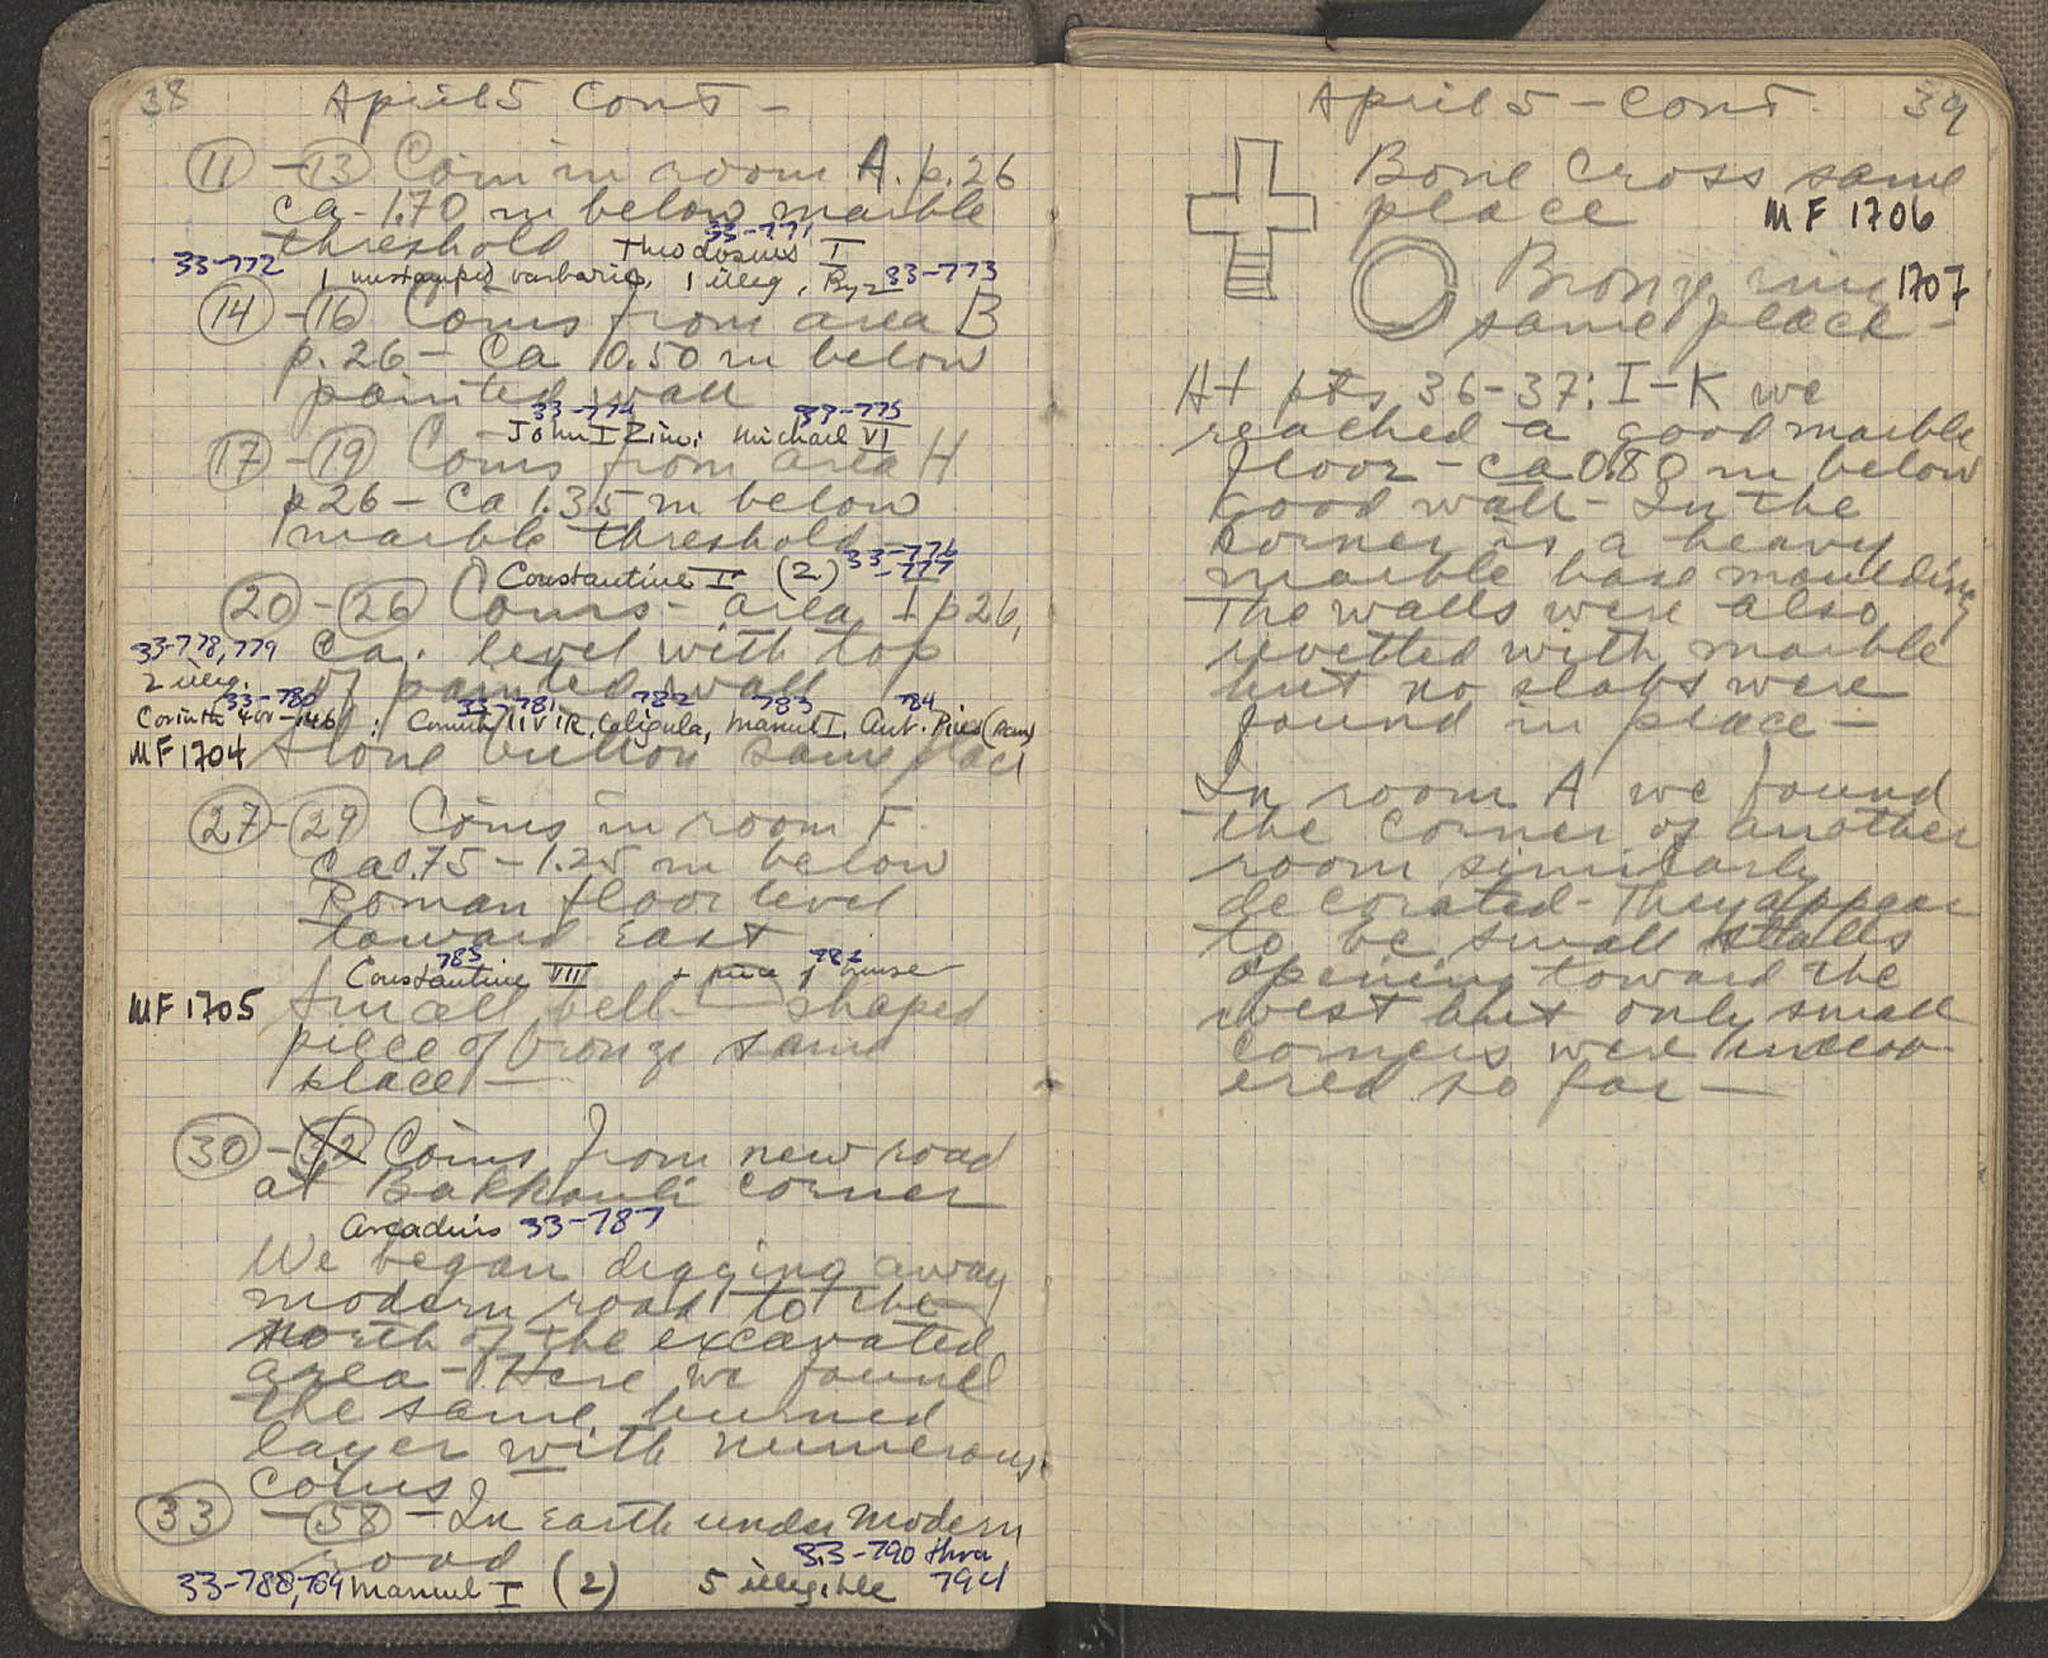 38 April 5 Cont -
11 - 13 Coin in room A. p. 26
ca - 1.70 m below marble
33-771
threshold Theodosius I
33-772 1 barbaric, 1 illeg, Byz 33-773
14 - 16 Coins from area B
p. 26 - Ca 0.50 m below
painted wall
33-774 33-775
John I Zimi Michael VI
17 - 19 Coins from area H
p 26 - Ca 1.35 m below
marble threshold
Constantine I (2) 33-776
-777
20 - 26 Coins - area I p 26,
33-778, 779 Ca. level with top
2 illeg. of painted wall
33-780 33-781 782 783 784
Corinth 400-146 : Corinth IIVIR, Caligula, Manuel I, Ant. Pius (Ram)
MF 1704 Stone button same place
27 - 29 Coins in room F.
Ca 0.75 - 1.25 m below
Roman floor level
toward East
785 786
Constantine VIII +
MF 1705 Small bell - shaped
piece of bronze same
place -
30 - 32 Coins from new road
at Bakkouli corner
Arcadius 33-787
We began digging away
modern road to the
North of the excavated
area - Here we found
the same burned
layer with numerous
coins
33 - 58 - In Earth under Modern
road
33-790 thru
33-788, 789 Manuel I (2) 5 illegible 794
April 5 - Cont. 39
Bone Cross same
place MF 1706
Bronze ring 1707
same place -
At pts 36-37; I-K we
reached a good marble
floor - ca 0.80 m below
good wall - In the
corner is a heavy
marble base moulding
The walls were also
revetted with marble
but no slabs were
found in place -
In room A we found
the corner of another
room similarly
decorated - They appear
to be small stalls
opening toward the
west but only small
corners were uncov-
ered so far -